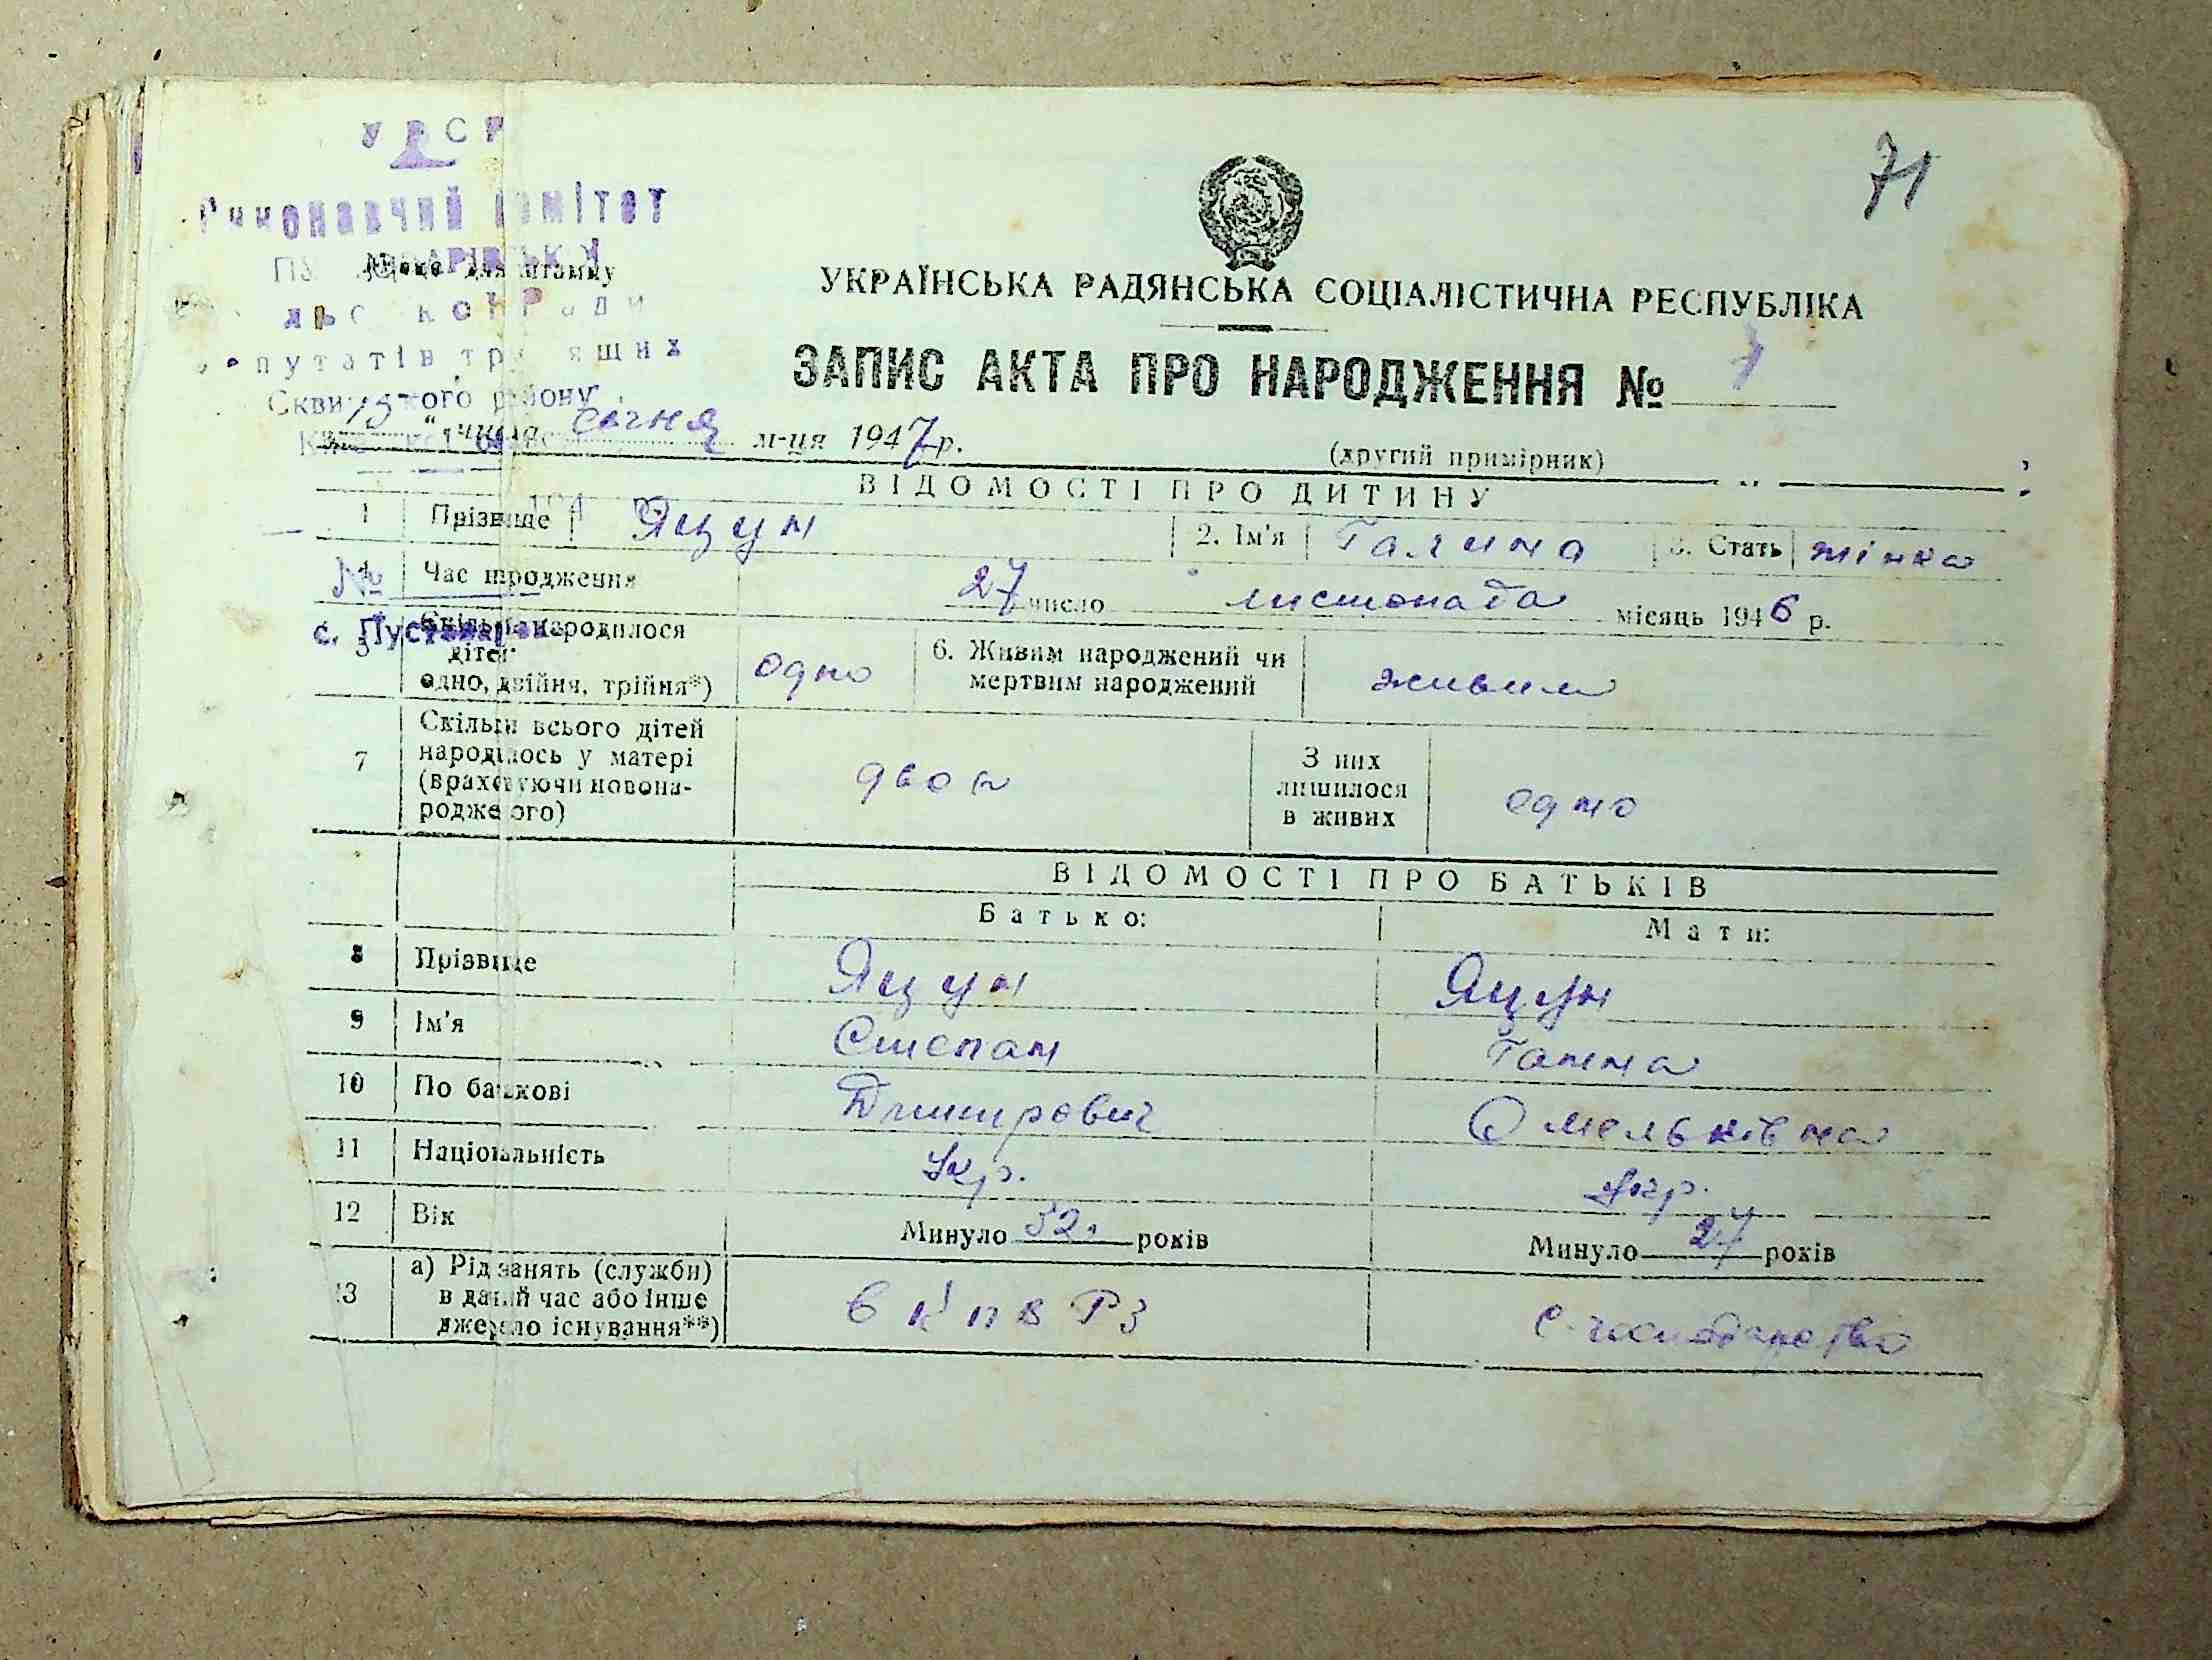 УРСР
71
Виконавчий комітет
Місце для штампу
УКРАЇНСЬКА РАДЯНСЬКА СОЦІАЛІСТИЧНА РЕСПУБЛІКА
депутатів трудящих
ЗАПИС АКТА ПРО НАРОДЖЕННЯ №
Сквирського району
15 " числа січня м-ця 1947 р.
(другий примірник)
ВІДОМОСТІ ПРО ДИТИНУ
1 Прізвище Яцун 2. Ім'я Галина 3. Стать жінка
№
4 Час народження 27 число листопада місяць 1946 р.
с.
5 Скільки народилося дітей одно, двійня, трійня*) одно 6. Живим народжений чи мертвим народжений живим
7 Скільки всього дітей народилось у матері (враховуючи новонародженого) двоє З них лишилося в живих одно
ВІДОМОСТІ ПРО БАТЬКІВ
Батько: Мати:
8 Прізвище Яцун Яцун
9 Ім'я Степан Ганна
10 По батькові Дмитрович Омельківна
11 Національність Укр. Укр.
12 Вік Минуло 32 років Минуло 27 років
13 а) Рід занять (служби) в даний час або інше джерело існування**) в КПВРЗ